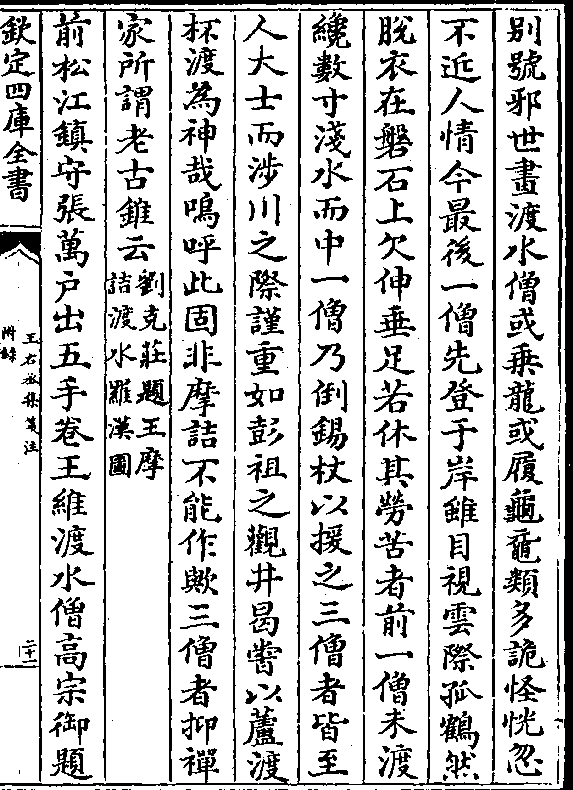 别號邪世畫渡水僧或乗龍或履龜黿類多詭怪恍忽
不近人情今最後一僧先登于岸雖目視雲際孤鶴然
脱衣在磐石上欠伸垂足若休其勞苦者前一僧未渡
纔數寸淺水而中一僧乃倒錫杖以援之三僧者皆至
人大士而涉川之際謹重如彭祖之觀井曷嘗以蘆渡
杯渡為神哉嗚呼此固非摩詰不能作歟三僧者抑禪
家所謂老古錐云劉克莊題王摩
詰渡水羅漢圖
前松江鎮守張萬戶出五手卷王維渡水僧高宗御題
欽定四庫全書
王右丞集箋注
附録
二十一